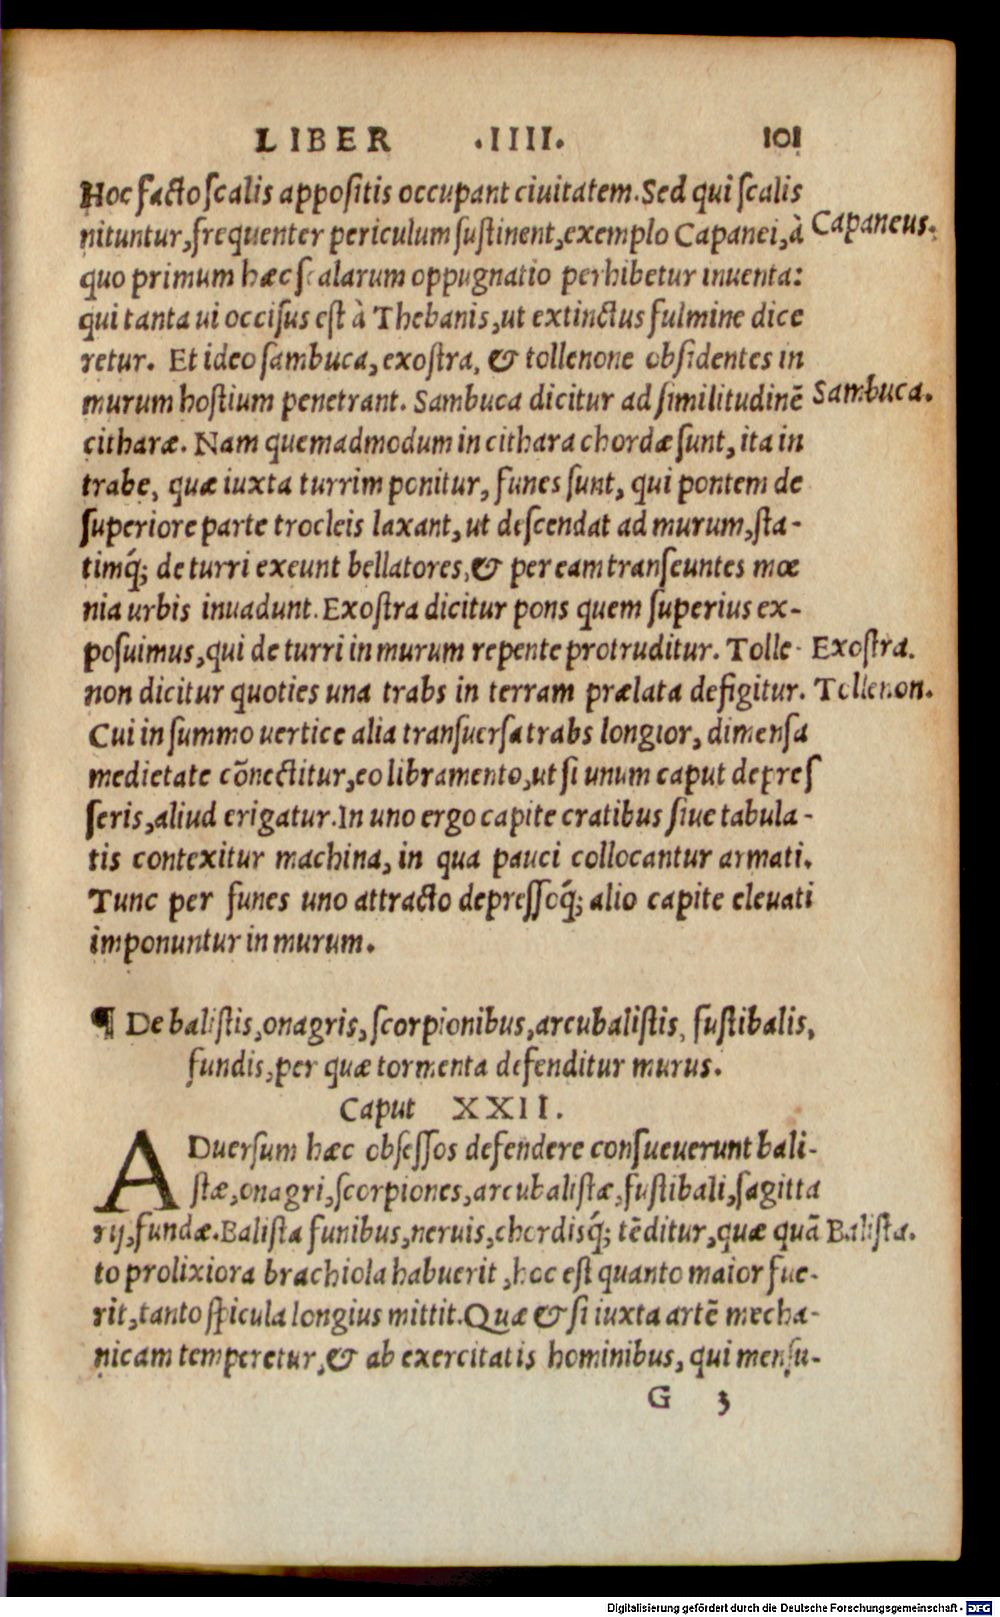 LIBER .IIII. 101
Hoc facto ſcalis appoſitis occupant ciuitatem. Sed qui ſcalis
nituntur, frequenter periculum ſuſtinent, exemplo Capanei, à
Capaneus.
quo primum hæc ſcalarum oppugnatio perhibetur inuenta:
qui tanta ui occiſus eſt à Thebanis, ut extinctus fulmine dice
retur. Et ideo ſambuca, exoſtra, & tollenone obſidentes in
murum hoſtium penetrant. Sambuca dicitur ad ſimilitudinē
Sambuca.
citharæ. Nam quemadmodum in cithara chordæ ſunt, ita in
trabe, quæ iuxta turrim ponitur, funes ſunt, qui pontem de
ſuperiore parte trocleis laxant, ut deſcendat ad murum, ſta-
timq́; de turri exeunt bellatores, & per eam tranſeuntes mœ
nia urbis inuadunt. Exoſtra dicitur pons quem ſuperius ex-
poſuimus, qui de turri in murum repente protruditur. Tolle-
Exoſtra.
non dicitur quoties una trabs in terram prælata defigitur.
Tollenon.
Cui in ſummo uertice alia tranſuerſa trabs longior, dimenſa
medietate cōnectitur, eo libramento, ut ſi unum caput depreſ
ſeris, aliud erigatur. In uno ergo capite cratibus ſiue tabula-
tis contexitur machina, in qua pauci collocantur armati.
Tunc per funes uno attracto depreſſoq́; alio capite eleuati
imponuntur in murum.
¶ De baliſtis, onagris, ſcorpionibus, arcubaliſtis, fuſtibalis,
fundis, per quæ tormenta defenditur murus.
Caput XXII.
ADuerſum hæc obſeſſos defendere conſueuerunt bali-
ſtæ, onagri, ſcorpiones, arcubaliſtæ, fuſtibali, ſagitta
rij, fundæ. Baliſta funibus, neruis, chordisq́; tēditur, quæ quā
Baliſta.
to prolixiora brachiola habuerit, hoc eſt quanto maior fue-
rit, tanto ſpicula longius mittit. Quæ & ſi iuxta artē mecha-
nicam temperetur, & ab exercitatis hominibus, qui menſu-
G 3
Digitalisierung gefördert durch die Deutsche Forschungsgemeinschaft - DFG